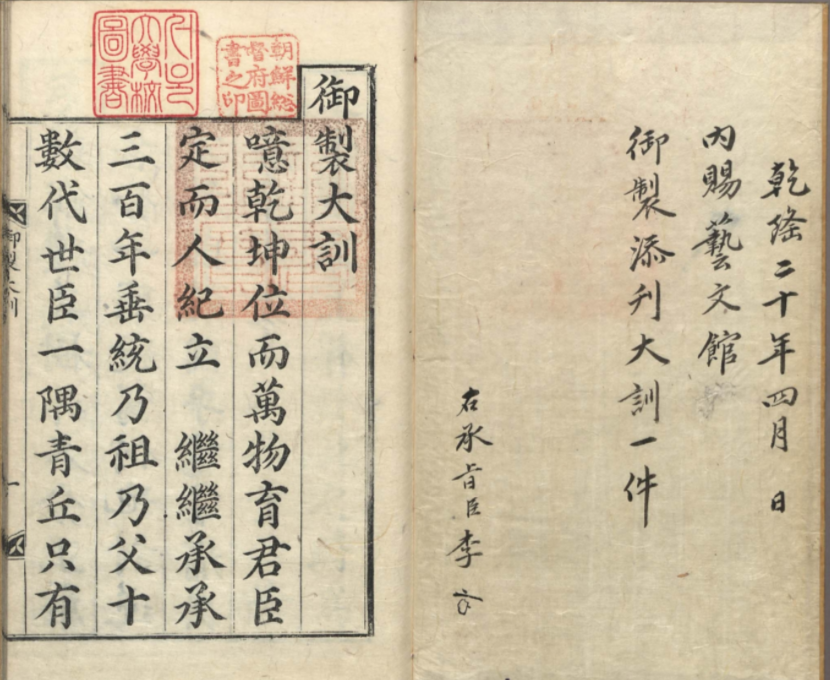 乾隆二十年四月 日
內賜藝文館
御製添刋大訓一件
右承旨臣李
朝鮮総
督府圖
書之印
大學校
圖書
御製大訓
噫乾坤位而萬物育君臣
定而人紀立 繼繼承承
三百年垂統乃祖乃父十
數代世臣一隅青丘只有
御製大訓
一